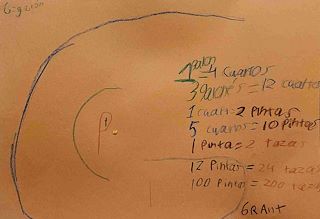 G=galón
1 galon=4 cuartos
3 galones=12 cuartos
1 cuart=2 pintas
P
5 cuartos=10 pintas
1 Pinta=2 tazas
12 Pintas=24 tazas
100 Pintas=200 tazas
GRAnt